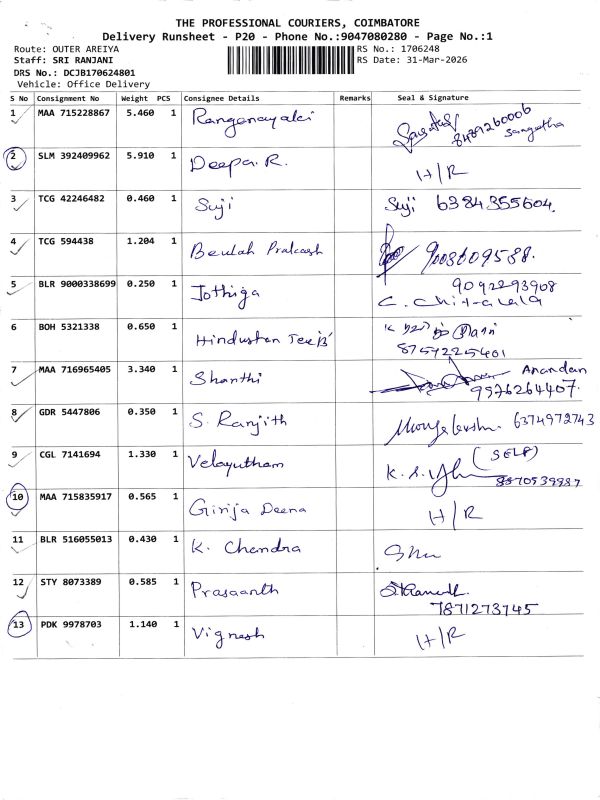 THE PROFESSIONAL COURIERS, COIMBATORE
Delivery Runsheet - P20 - Phone No.:9047080280 - Page No.:1
Route: OUTER AREIYA
RS No.: 1706248
Staff: SRI RANJANI
RS Date: 31-Mar-2026
DRS No.: DCJB170624801
Vehicle: Office Delivery
S No Consignment No Weight PCS Consignee Details Remarks Seal & Signature
1 MAA 715228867 5.460 1 Ranganayaki 8489260006 Sangetha
2 SLM 392409962 5.910 1 Deepa.R. H/R
3 TCG 42246482 0.460 1 Suji Suji 6384355604.
4 TCG 594438 1.204 1 Beulah Prakash 9003609538.
5 BLR 9000338699 0.250 1 Jothiga 9092293908
C. Chitralala
6 BOH 5321338 0.650 1 Hindustan
8757225401
7 MAA 716965405 3.340 1 Shanthi Anandan
9976264407.
8 GDR 5447806 0.350 1 S. Ranjith 6374972743
9 CGL 7141694 1.330 1 Velayutham (SELF)
8870539887
10 MAA 715835917 0.565 1 Girija Deena H/R
11 BLR 516055013 0.430 1 K. Chendra
12 STY 8073389 0.585 1 Prasaanth
7871273745
13 PDK 9978703 1.140 1 Vignesh H/R